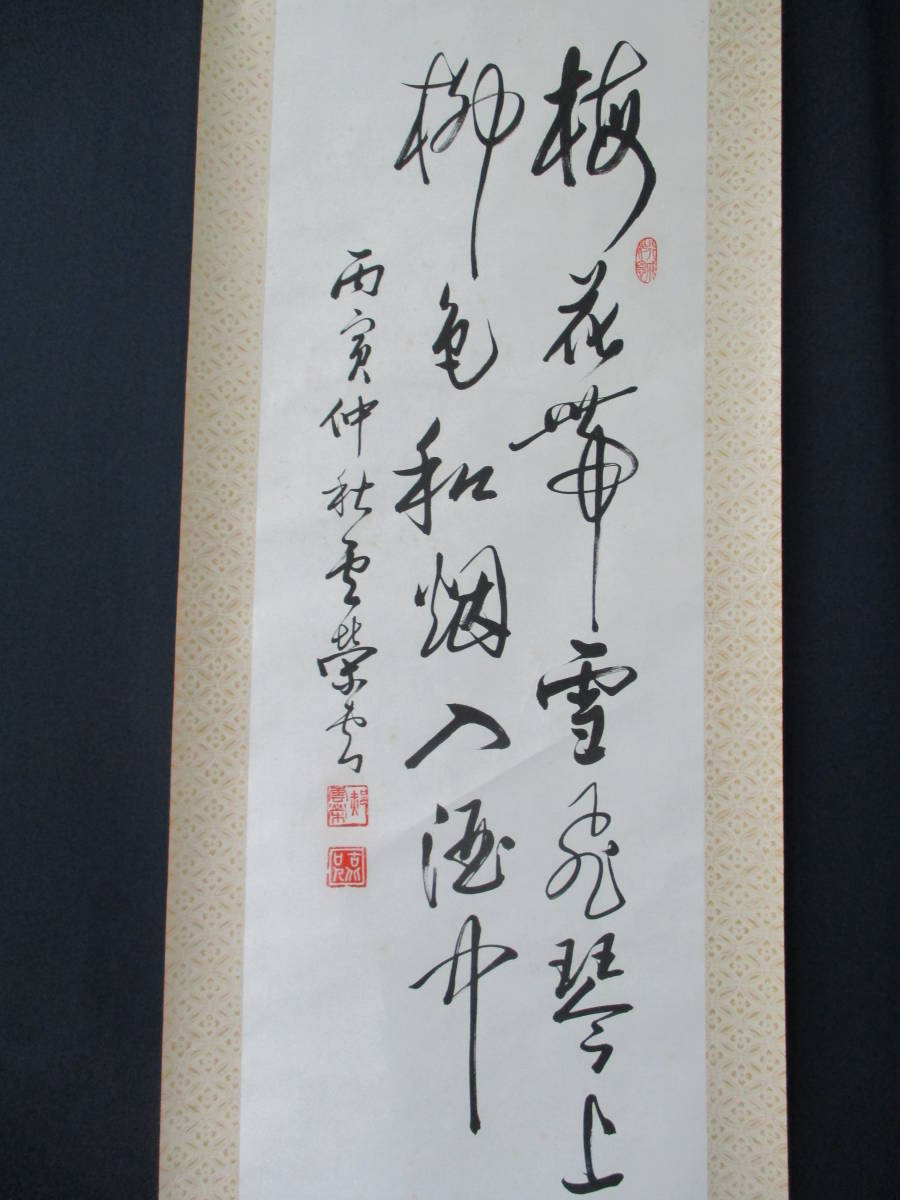 梅花帯雪飛琴上
柳色和烟入酒中
丙寅仲秋雲榮書